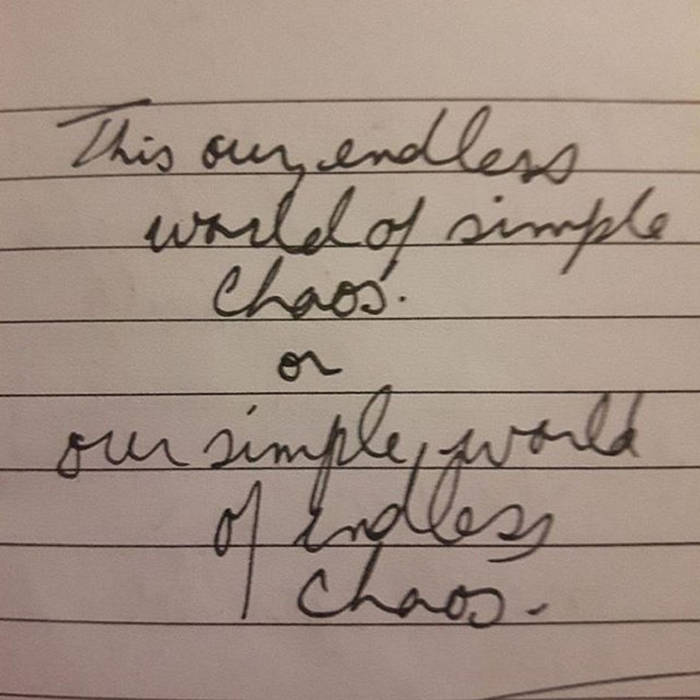 This our, endless
world of simple
chaos.
or
our simple, world
of endless
chaos.